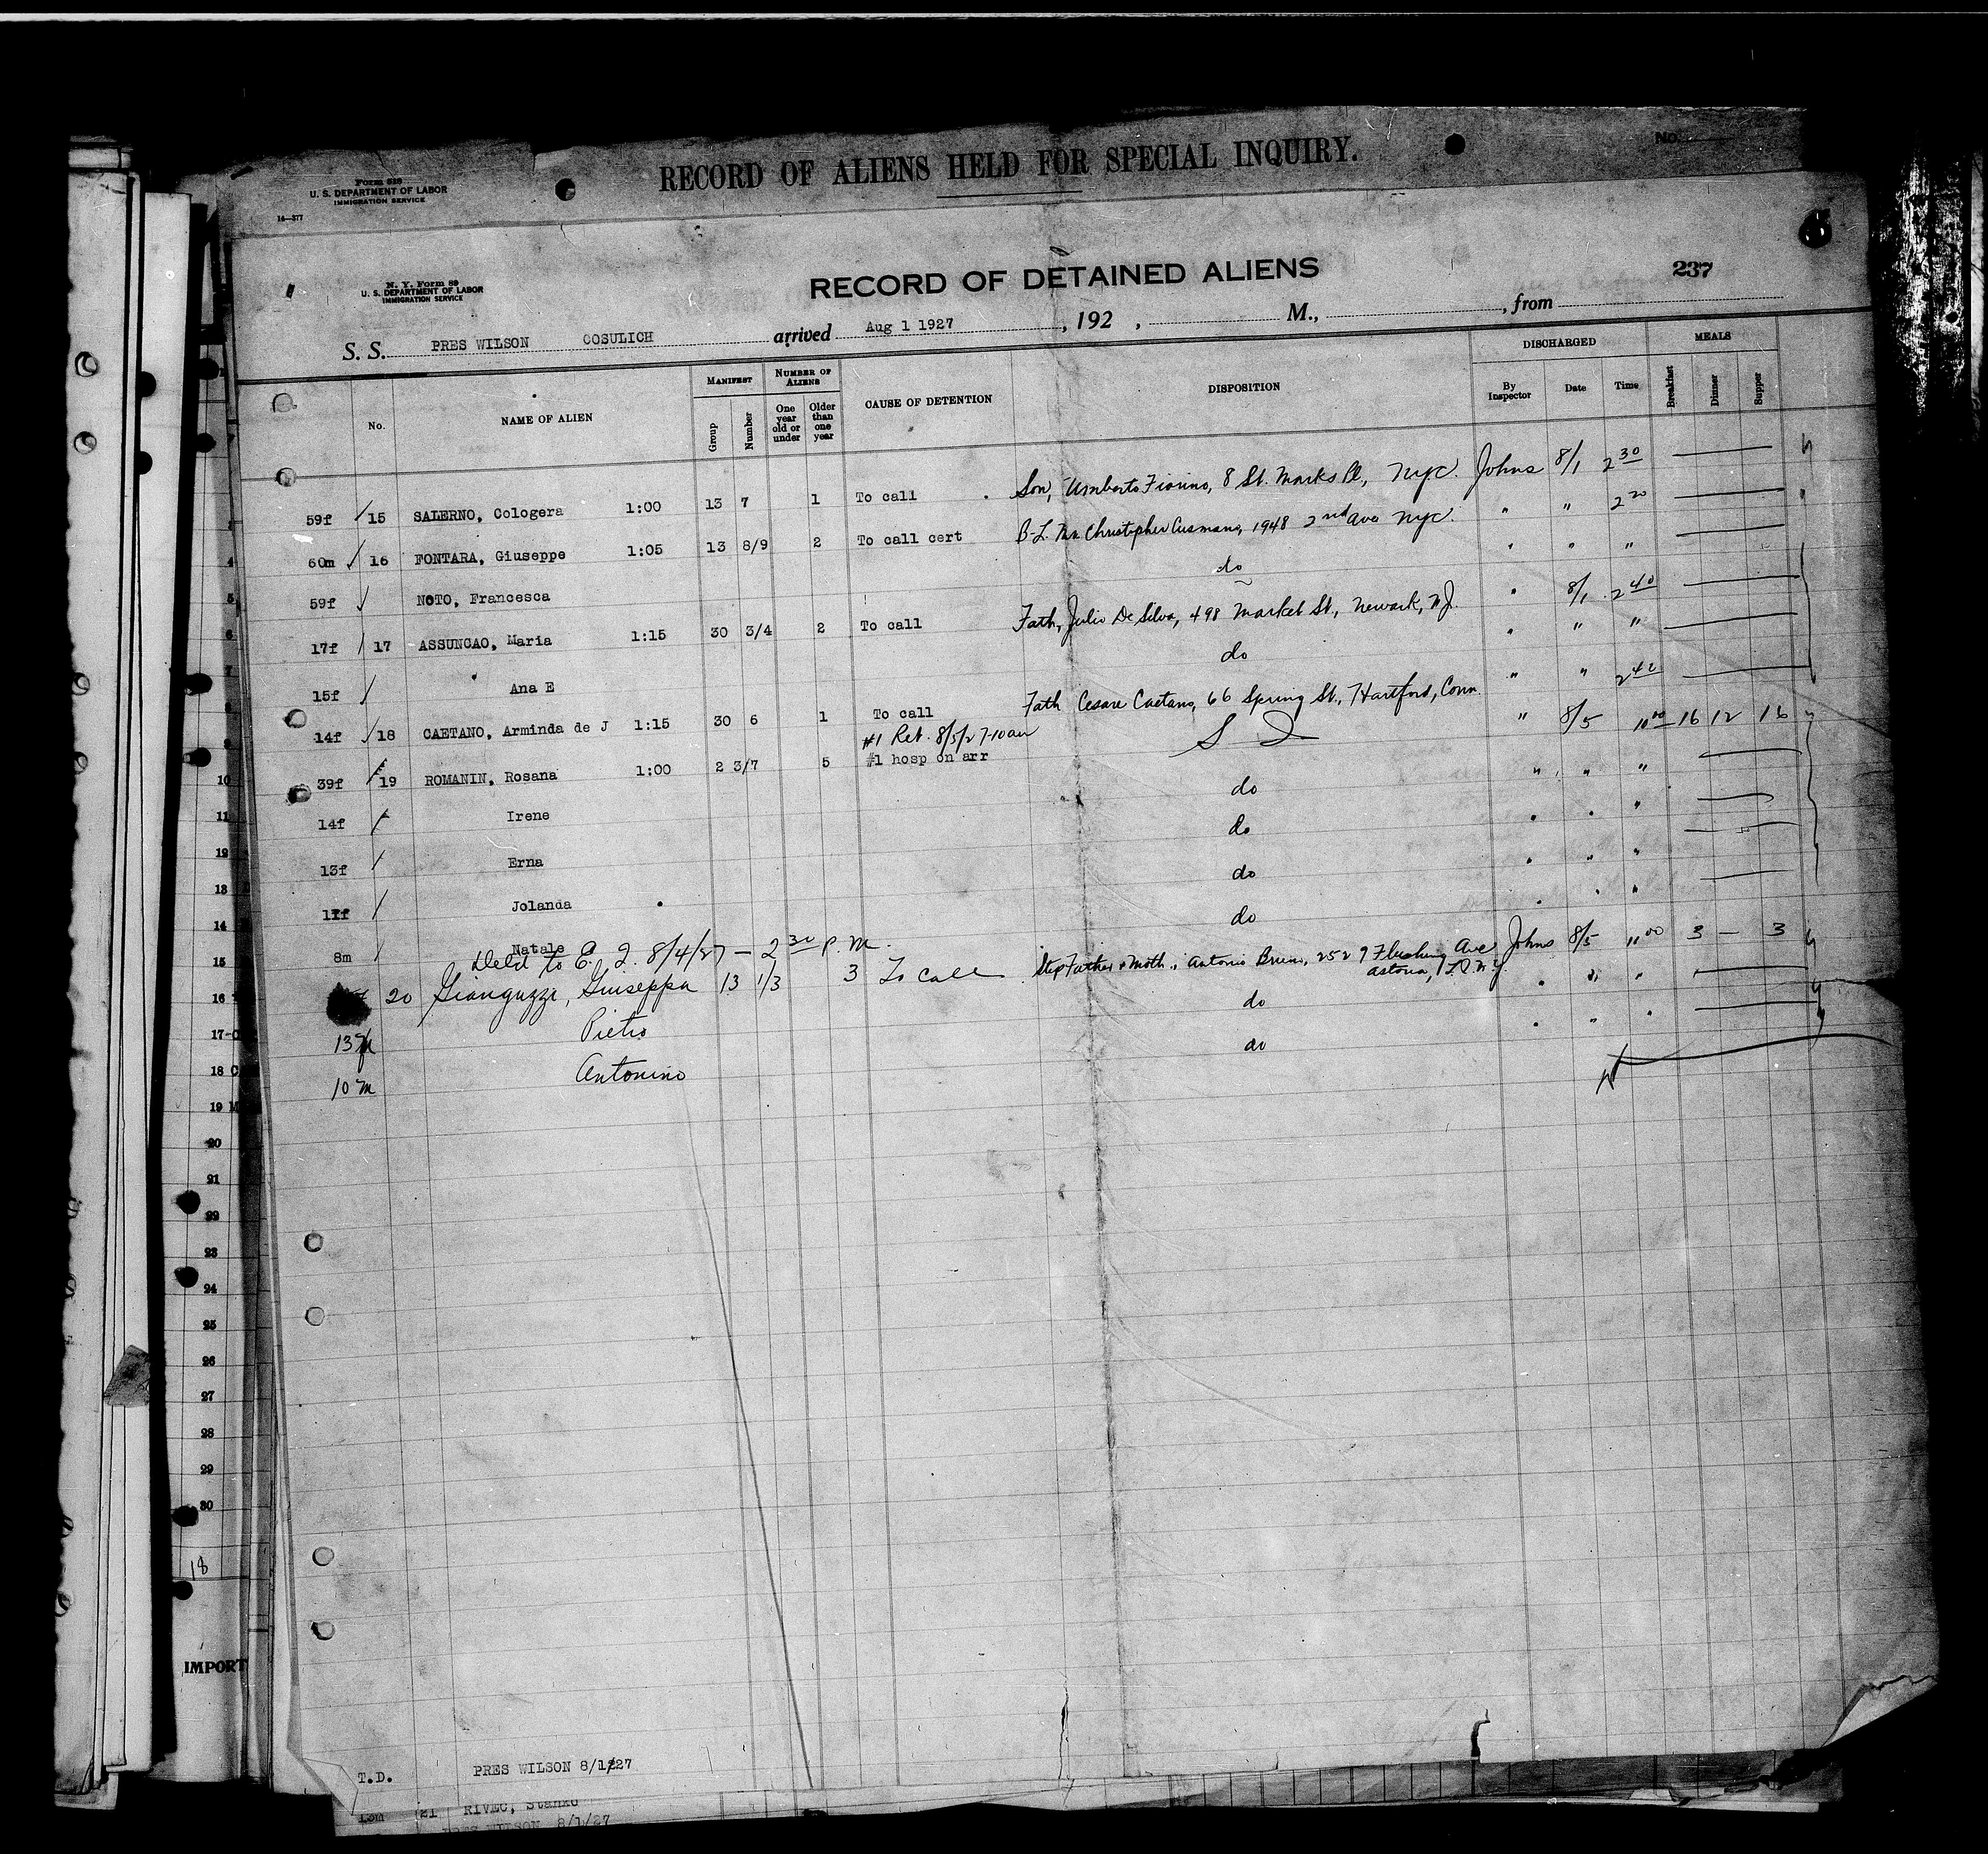 No.
RECORD OF ALIENS HELD FOR SPECIAL INQUIRY.
Form 519
U. S. DEPARTMENT OF LABOR
IMMIGRATION SERVICE
14—377
N. Y. Form 89
U. S. DEPARTMENT OF LABOR
IMMIGRATION SERVICE
RECORD OF DETAINED ALIENS
237
S. S. PRES WILSON COSULICH arrived Aug 1 1927, 192 , M., , from
No. NAME OF ALIEN MANIFEST Group Number NUMBER OF ALIENS One year old or under Older than one year CAUSE OF DETENTION DISPOSITION DISCHARGED By Inspector Date Time MEALS Breakfast Dinner Supper
59f 15 SALERNO, Cologera 1:00 13 7 1 To call Son, Umberto Fiorino, 8 St. Marks Pl, NYC. Johns 8/1 2 30
60m 16 FONTARA, Giuseppe 1:05 13 8/9 2 To call cert B-L. Christopher Cusmano, 1948 2nd Ave NYC. " " 2 20
59f NOTO, Francesca do " " "
17f 17 ASSUNCAO, Maria 1:15 30 3/4 2 To call Fath, Julio De Silva, 498 Market St., Newark, N.J. " 8/1 2 40
15f Ana E do " " "
14f 18 CAETANO, Arminda de J 1:15 30 6 1 To call Fath Cesare Caetano, 66 Spring St., Hartford, Conn. " " 2 42
#1 Ret. 8/5/27-10am
39f 19 ROMANIN, Rosana 1:00 2 3/7 5 #1 hosp on arr S I " 8/5 10 00 16 12 16
14f Irene do " " "
13f Erna do " " "
11f Jolanda do " " "
8m Natale do " "
Held to E. I. 8/4/27 — 2 30 P.M.
20 Gianguzzi, Giuseppa 13 1/3 3 To call Step Father & Moth., Antonio Bruno, 2529 Flushing Ave Astoria, L.I. N.Y. Johns 8/5 11 00 3 — 3
13 m Pietro do " " "
10 m Antonino do " " "
10
11
12
13
14
15
16
17
18
19
20
21
22
23
24
25
26
27
28
29
30
18
IMPORT
T.D. PRES WILSON 8/1/27
13m 21 RIVEC, Stanko
PRES WILSON 8/1/27